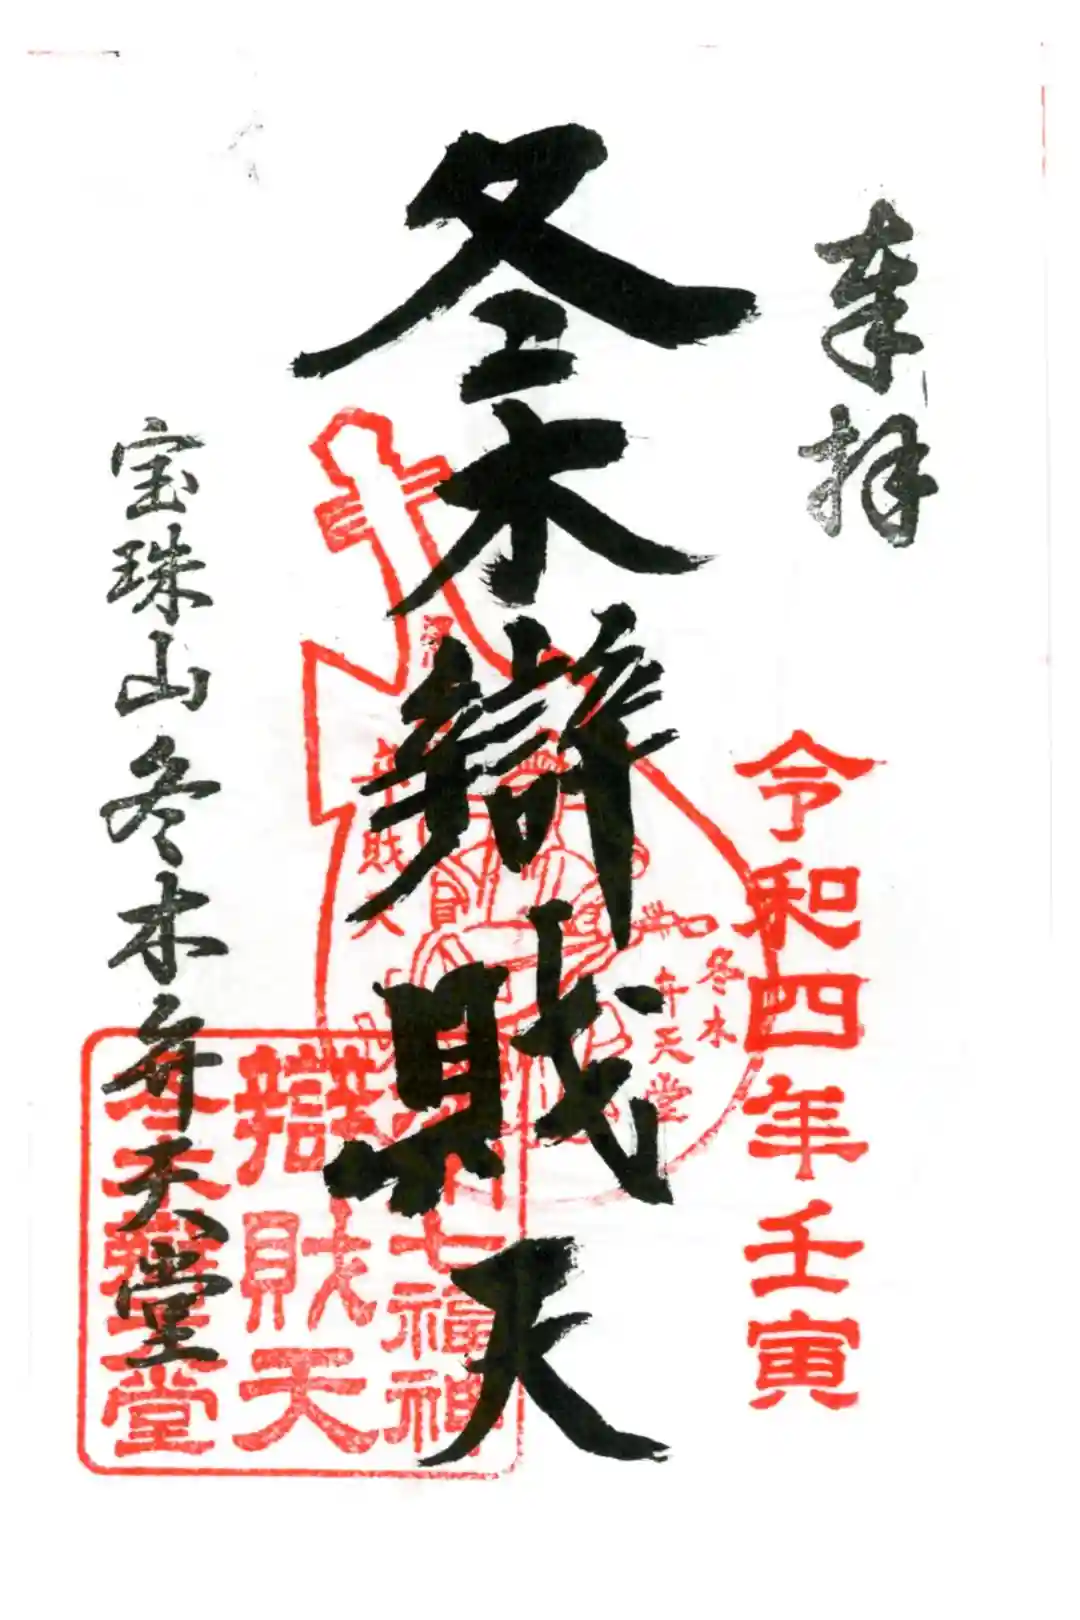 奉拝
令和四年壬寅
冬木辯財天
冬木
弁天堂
七福神
辯財天
宝珠山冬木弁天堂